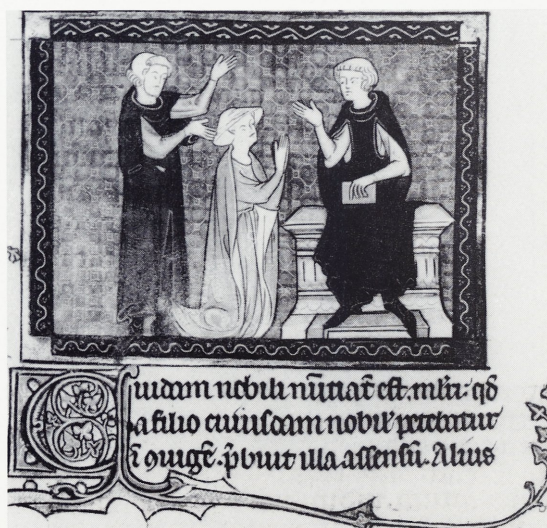 Cuidam nobili nūtiat̄ est. ml̄ri. qđ
a filio cuiusdam nobiľ petebatur
ī ꝯiugē. p̄buit illa assensū. Alius